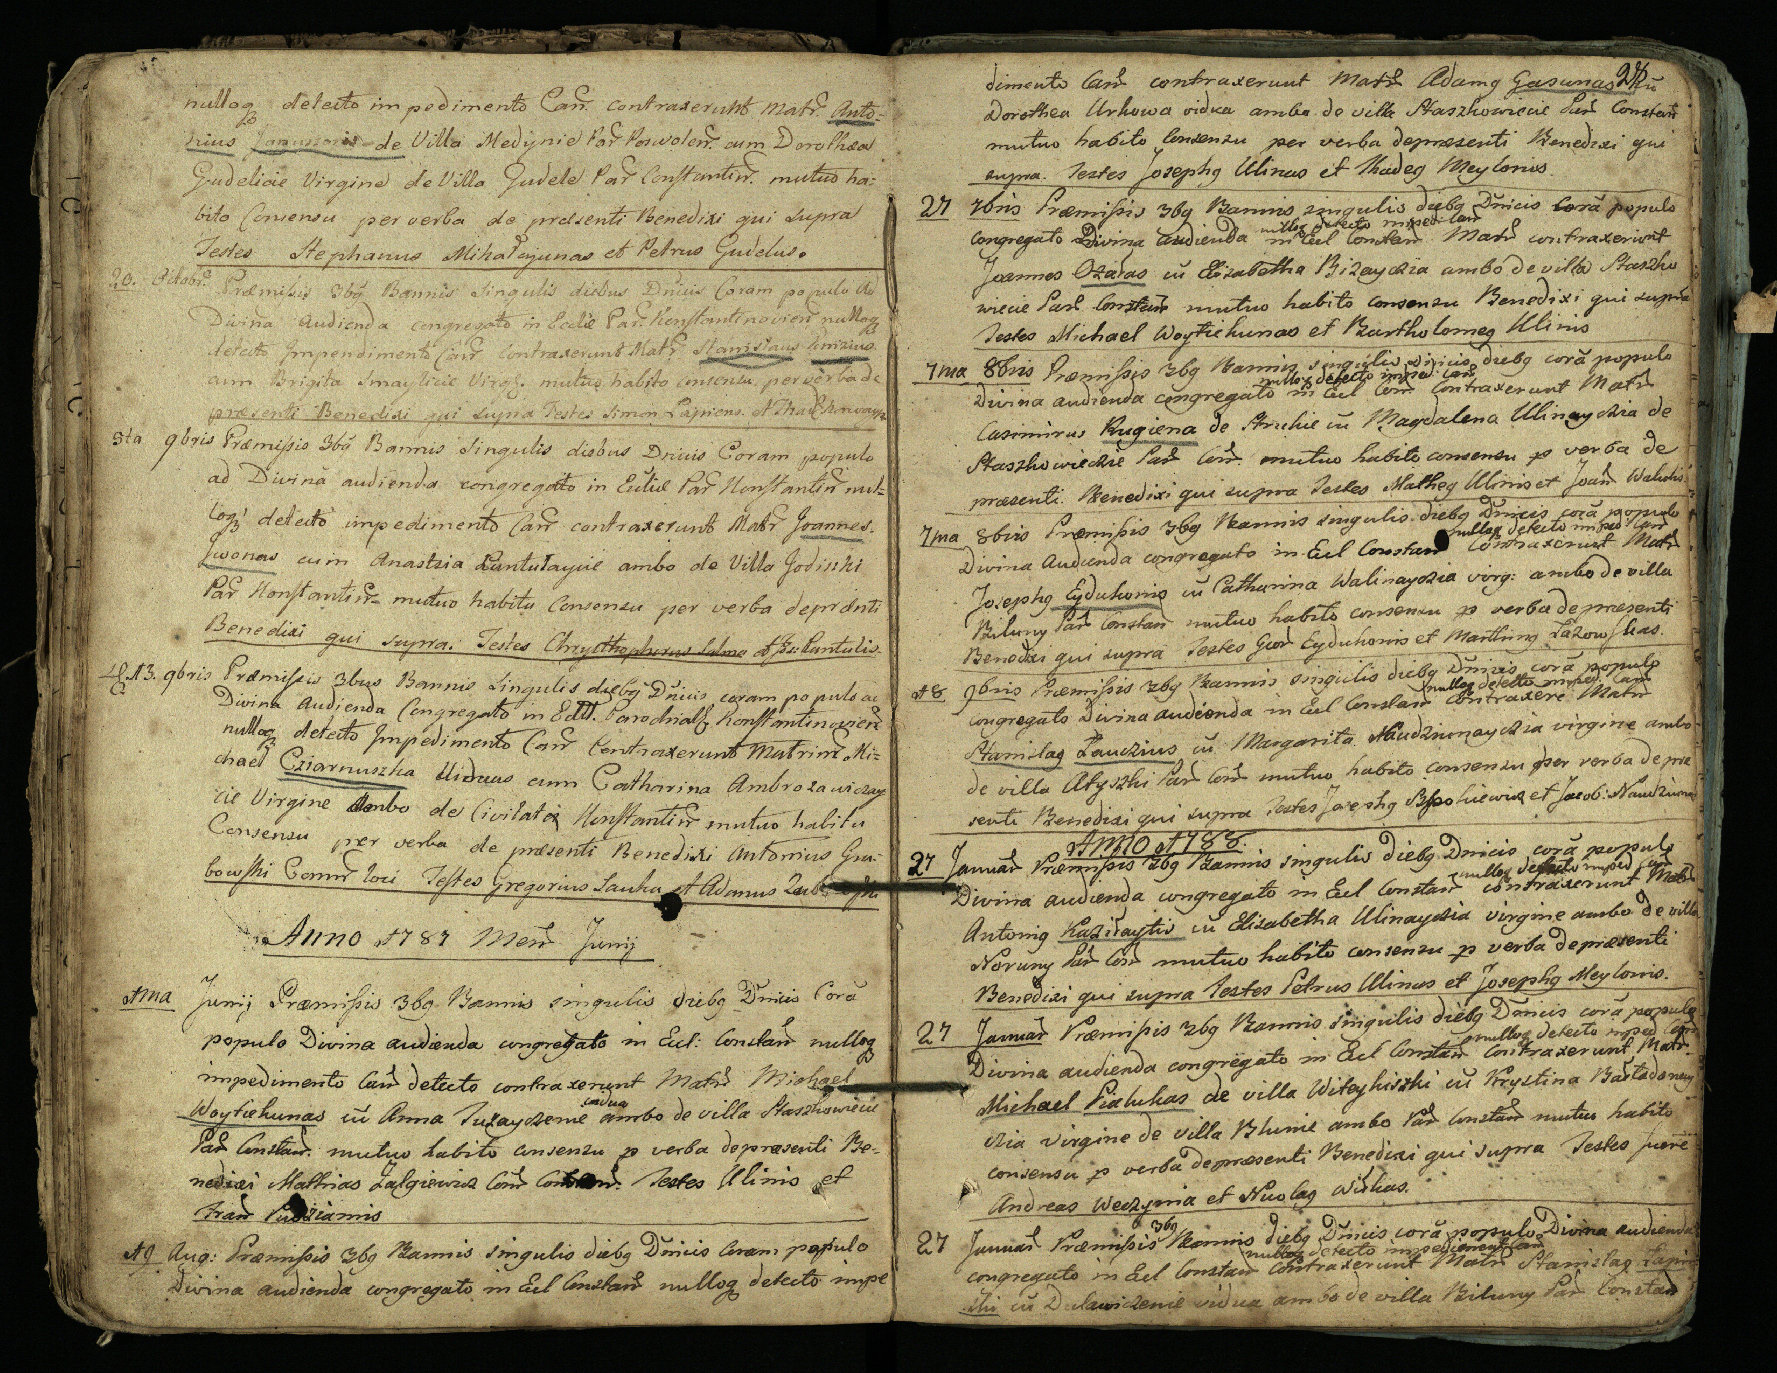 nulloq detecto impedimento Can̄ contraxerunt Matr̄ Anto-
nius Januszonis de Villa Medynie Par̄ Poswolen̄. cum Dorothea
Gudelicie Virgine de Villa Gudele Par̄ Constantin̄. mutuo ha-
bito Consensu per verba de præsenti Benedixi qui supra
Testes Stephanus Mihałayunas et Petrus Gudelus.
20. Octobr̄. Præmissis 3bq Bannis Singulis diebus Dn̄icis Coram populo ad
Divina Audienda congregato in Eccliē Par. Konstantinovien̄ nulloq
detecto Impendimento Can̄ contraxerunt Matr̄ Stanisłaus
cum Brigita Smaylicie Virg. mutuo habito consensu, per verba de
præsenti Benedixi qui supra Testes Simon Lapiens et Thad
8ta 9bris Præmissis 3bq Bannis Singulis diebus Dn̄icis Coram populo
ad Divinā audienda congregato in Eccliē Par̄ Konstantin̄ nul-
loq detecto impedimento Can̄ contraxerunt Matr̄ Joannes
Jwonas cum Anastzia Puntułayiie ambo de Villa Jodiszki
Par̄ Konstantin̄ mutuo habitu Consensu per verba de præsnti
Benedixi qui supra. Testes Chrysthophorus et Puntulis.
13. 9bris Præmissis 3bus Bannis Singulis diebq Dn̄icis coram populo ad
Divina Audienda Congregato in Eccl. Parochialj Konstantinovien̄
nulloq detecto Impedimento Can̄ Contraxerunt Matrim̄ Mi-
chael Cziarnuszka Uiduus cum Catharina Ambrozawiczay
cie Virgine Ambo de Civitate Konstantin̄ mutuo habitu
Consensu per verba de præsenti Benedixi Antonius Gra-
bowski Comm̄ loci Testes Gregorius Lauka et Adamus
Anno 1787 Men̄ Junij
1ma Junij Præmissis 3bq Bannis singulis diebq Dn̄icis Corā
populo Divina audienda congregato in Ecl: Constan̄ nulloq
impedimento Can̄ detecto contraxerunt Matr̄ Michael
Woytiekunas cū Anna Tuzayczenie vidua ambo de villa Staszkowiecie
Par̄ Constan̄. mutuo habito consensu p verba depræsenti Be-
nedixi Mathias Zalgiewicz Com̄ Constan̄. Testes Ulinis et
Fran̄ Pudziamis
19 Aug: Præmissis 3bq Bannis singulis diebq Dn̄icis Coram populo
Divina audienda congregato in Ecl Constan̄ nulloq detecto impe
dimento Can̄ contraxerunt Matr̄ Adamq Gasunas cū
Dorothea Urkowa vidua ambo de villa Staszkowiecie Par̄ Constan̄
mutuo habito Consensu per verba depræsenti Benedixi qui
supra. Testes Josephq Ulinas et Thadeq Meylonis
27 7bris Præmissis 3bq Bannis singulis diebq Dn̄icis corā populo
congregato Divina audienda in Ecl Constan̄ nulloq detecto imped Can̄ Matr̄ contraxerunt
Joannes Ozałas cū Elizabetha Bizayczia ambo de villa Staszko
wiecie Par̄ Constan̄ mutuo habito consensu Benedixi qui supra
Testes Michael Woytiekunas et Bartholomeq Ulinis
7ma 8bris Præmissis 3bq Bannis singulis Dn̄icis diebq corā populo
Divina audienda congregato in Ecl Con̄. nulloq detecto imped: Can̄ contraxerunt Matr̄
Casimirus Rugiena de Strukie cū Magdalena Ulinayczia de
Staszkowieczie Par̄ Con̄. mutuo habito consensu p verba de
præsenti. Benedixi qui supra Testes Matheq Ulinis et Joan̄
7ma 8bris Præmissis 3bq Bannis singulis diebq Dn̄icis corā populo
Divina Audienda congregato in Ecl Constan̄ nulloq detecto imped Can̄ contraxerunt Matr̄
Josephq Eydukonis cū Catharina Walinayczia virg: ambo de villa
Biluny Par̄ Constan̄ mutuo habito consensu p verba depræsenti
Benedixi qui supra Testes Geor̄ Eydukonis et Martinq Lazowskas.
18 9bris Præmissis 3bq Bannis singulis diebq Dn̄icis corā populo
congregato Divina audienda in Ecl Constan̄ nulloq detecto imped: Can̄ contraxere Matr̄
Stanislaq Lauczius cū Margarita Naudziunayczia virgine ambo
de villa Atyszki Par̄ Con̄ mutuo habito consensu per verba depræ
senti Benedixi qui supra Testes Josephq et Jacob: Naudziunas
Anno 1788.
27 Januar̄ Præmissis 3bq Bannis singulis diebq Dn̄icis corā populo
Divina audienda congregato in Ecl Constan̄ nulloq detecto imped Can̄ contraxerunt Matr̄
Antoniq Kaziłaytis cū Elizabetha Ulinayczia virgine ambo de villa
Noruny Par̄ Con̄ mutuo habito consensu p verba depræsenti
Benedixi qui supra Testes Petrus Ulinas et Josephq Meylonis.
27 Januar̄ Præmissis 3bq Bannis singulis diebq Dn̄icis corā populo
Divina audienda congregato in Ecl Constan̄ nulloq detecto imped Can̄ contraxerunt Matr̄
Michael Piałukas de villa Witeykiszki cū Krystina
czia virgine de villa Blunie ambo Par̄ Constan̄ mutuo habito
consensu p verba depræsenti Benedixi qui supra Testes fuere
Andreas Wedzynia et Nicolaq Wiskas.
27 Januar̄ Præmissis 3bq Bannis diebq Dn̄icis corā populo Divina audienda
congregato in Ecl Constan̄ nulloq detecto impedimento Can̄ contraxerunt Matr̄ Stanislaq
cū Dulawiczenie vidua ambo de villa Biluny Par̄ Constan̄